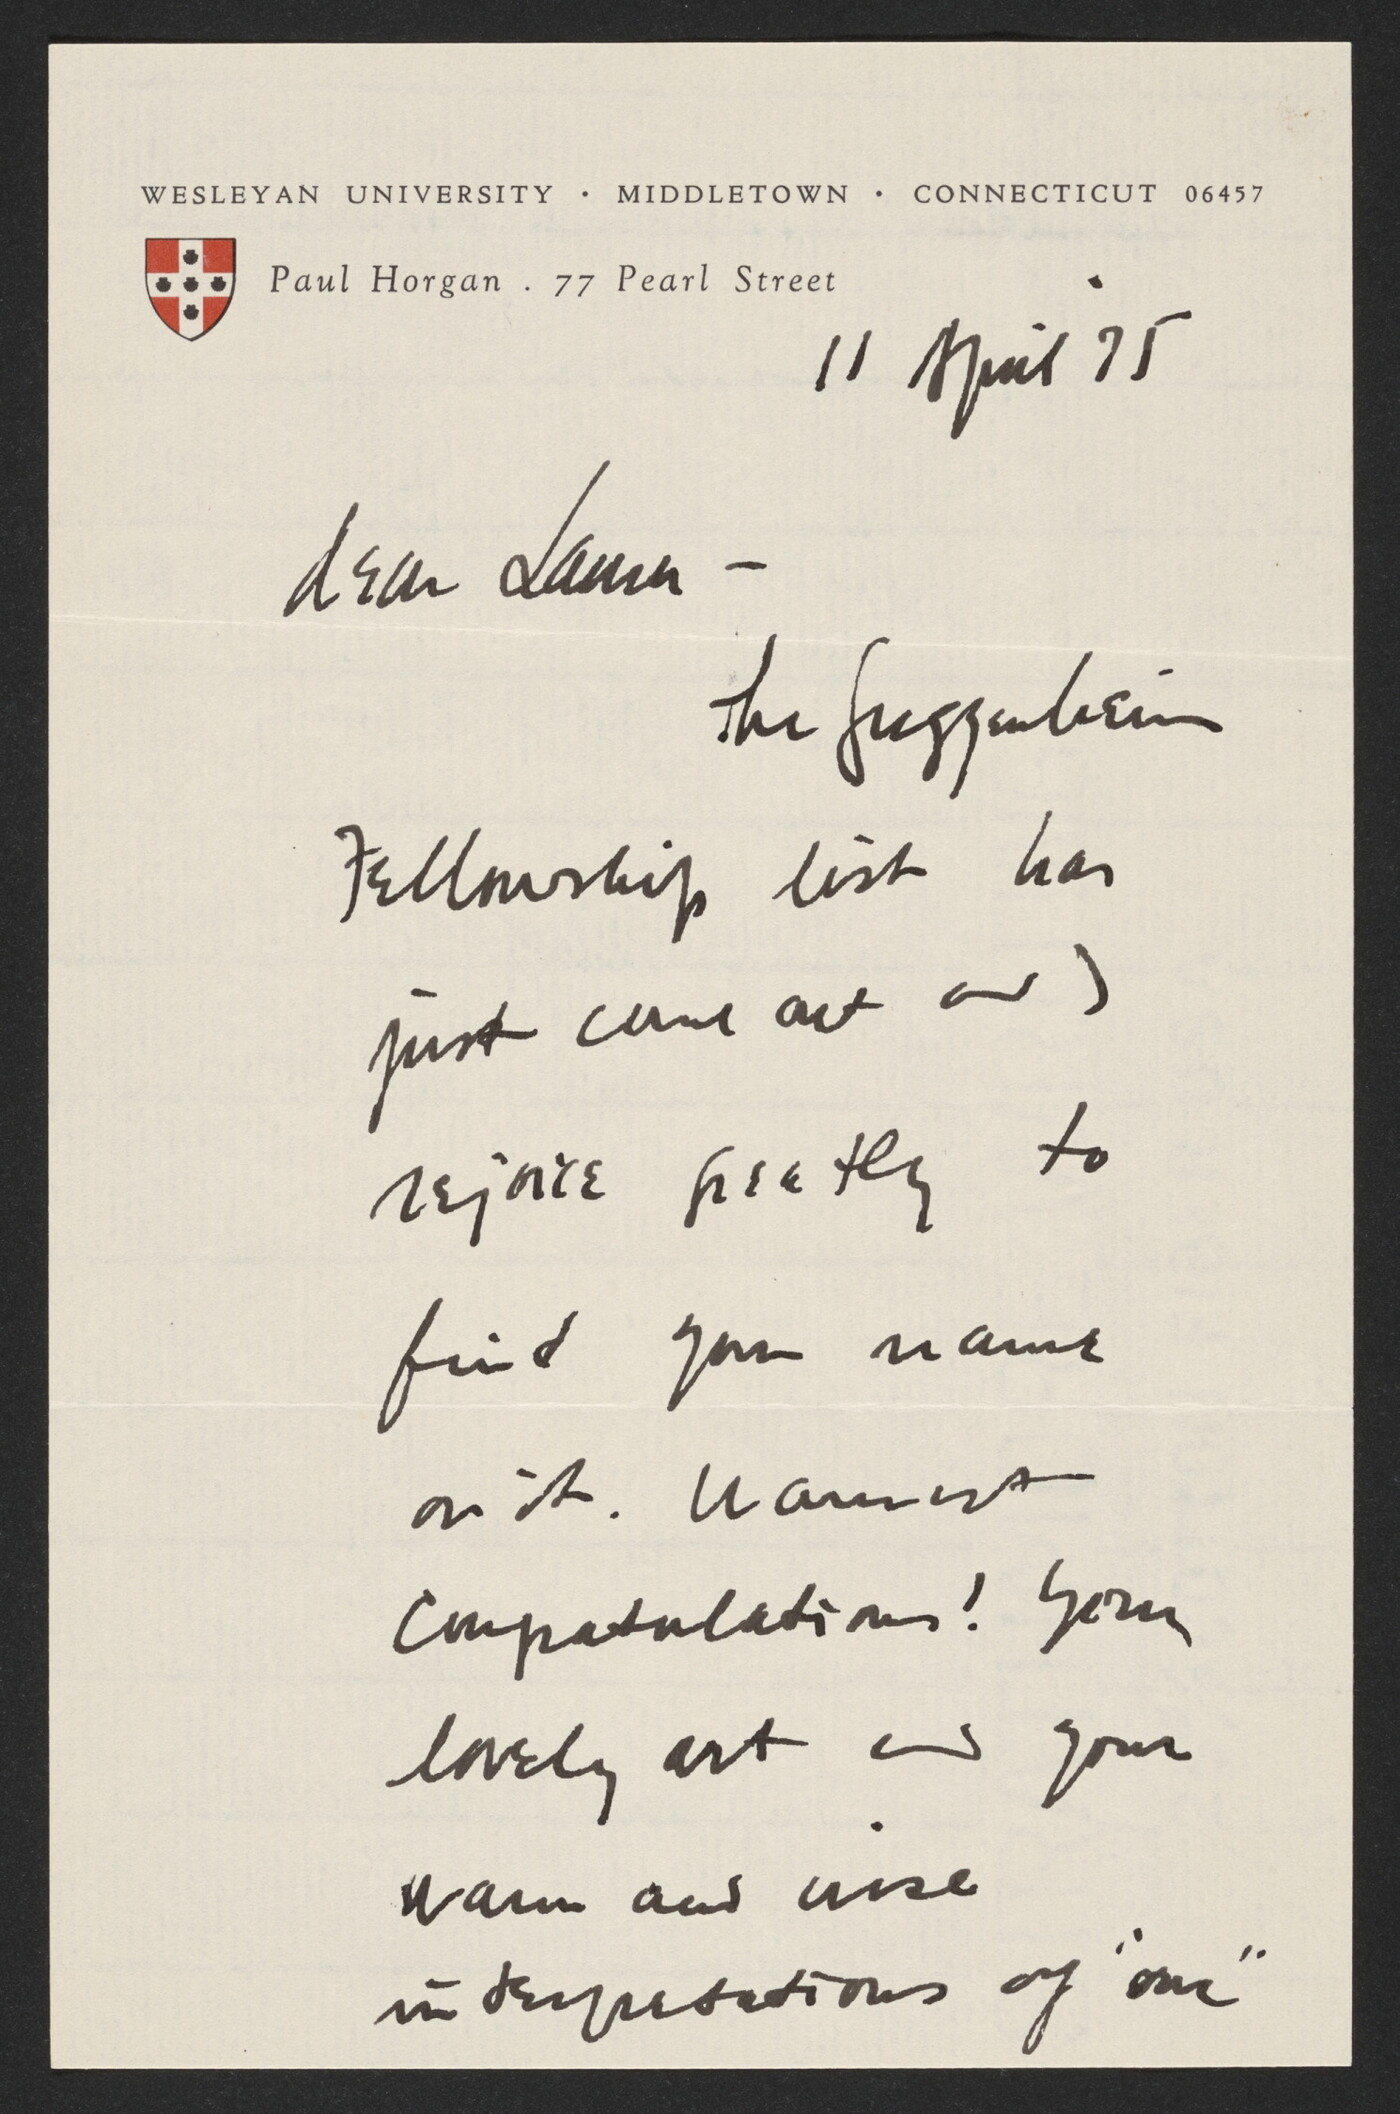 WESLEYAN UNIVERSITY · MIDDLETOWN · CONNECTICUT 06457
Paul Horgan . 77 Pearl Street
11 April '75
dear Laura –
The Guggenheim
Fellowship list has
just come out and I
rejoice greatly to
find your name
on it. Warmest
Congratulations! Your
lovely art and your
warm and wise
interpretations of "our"